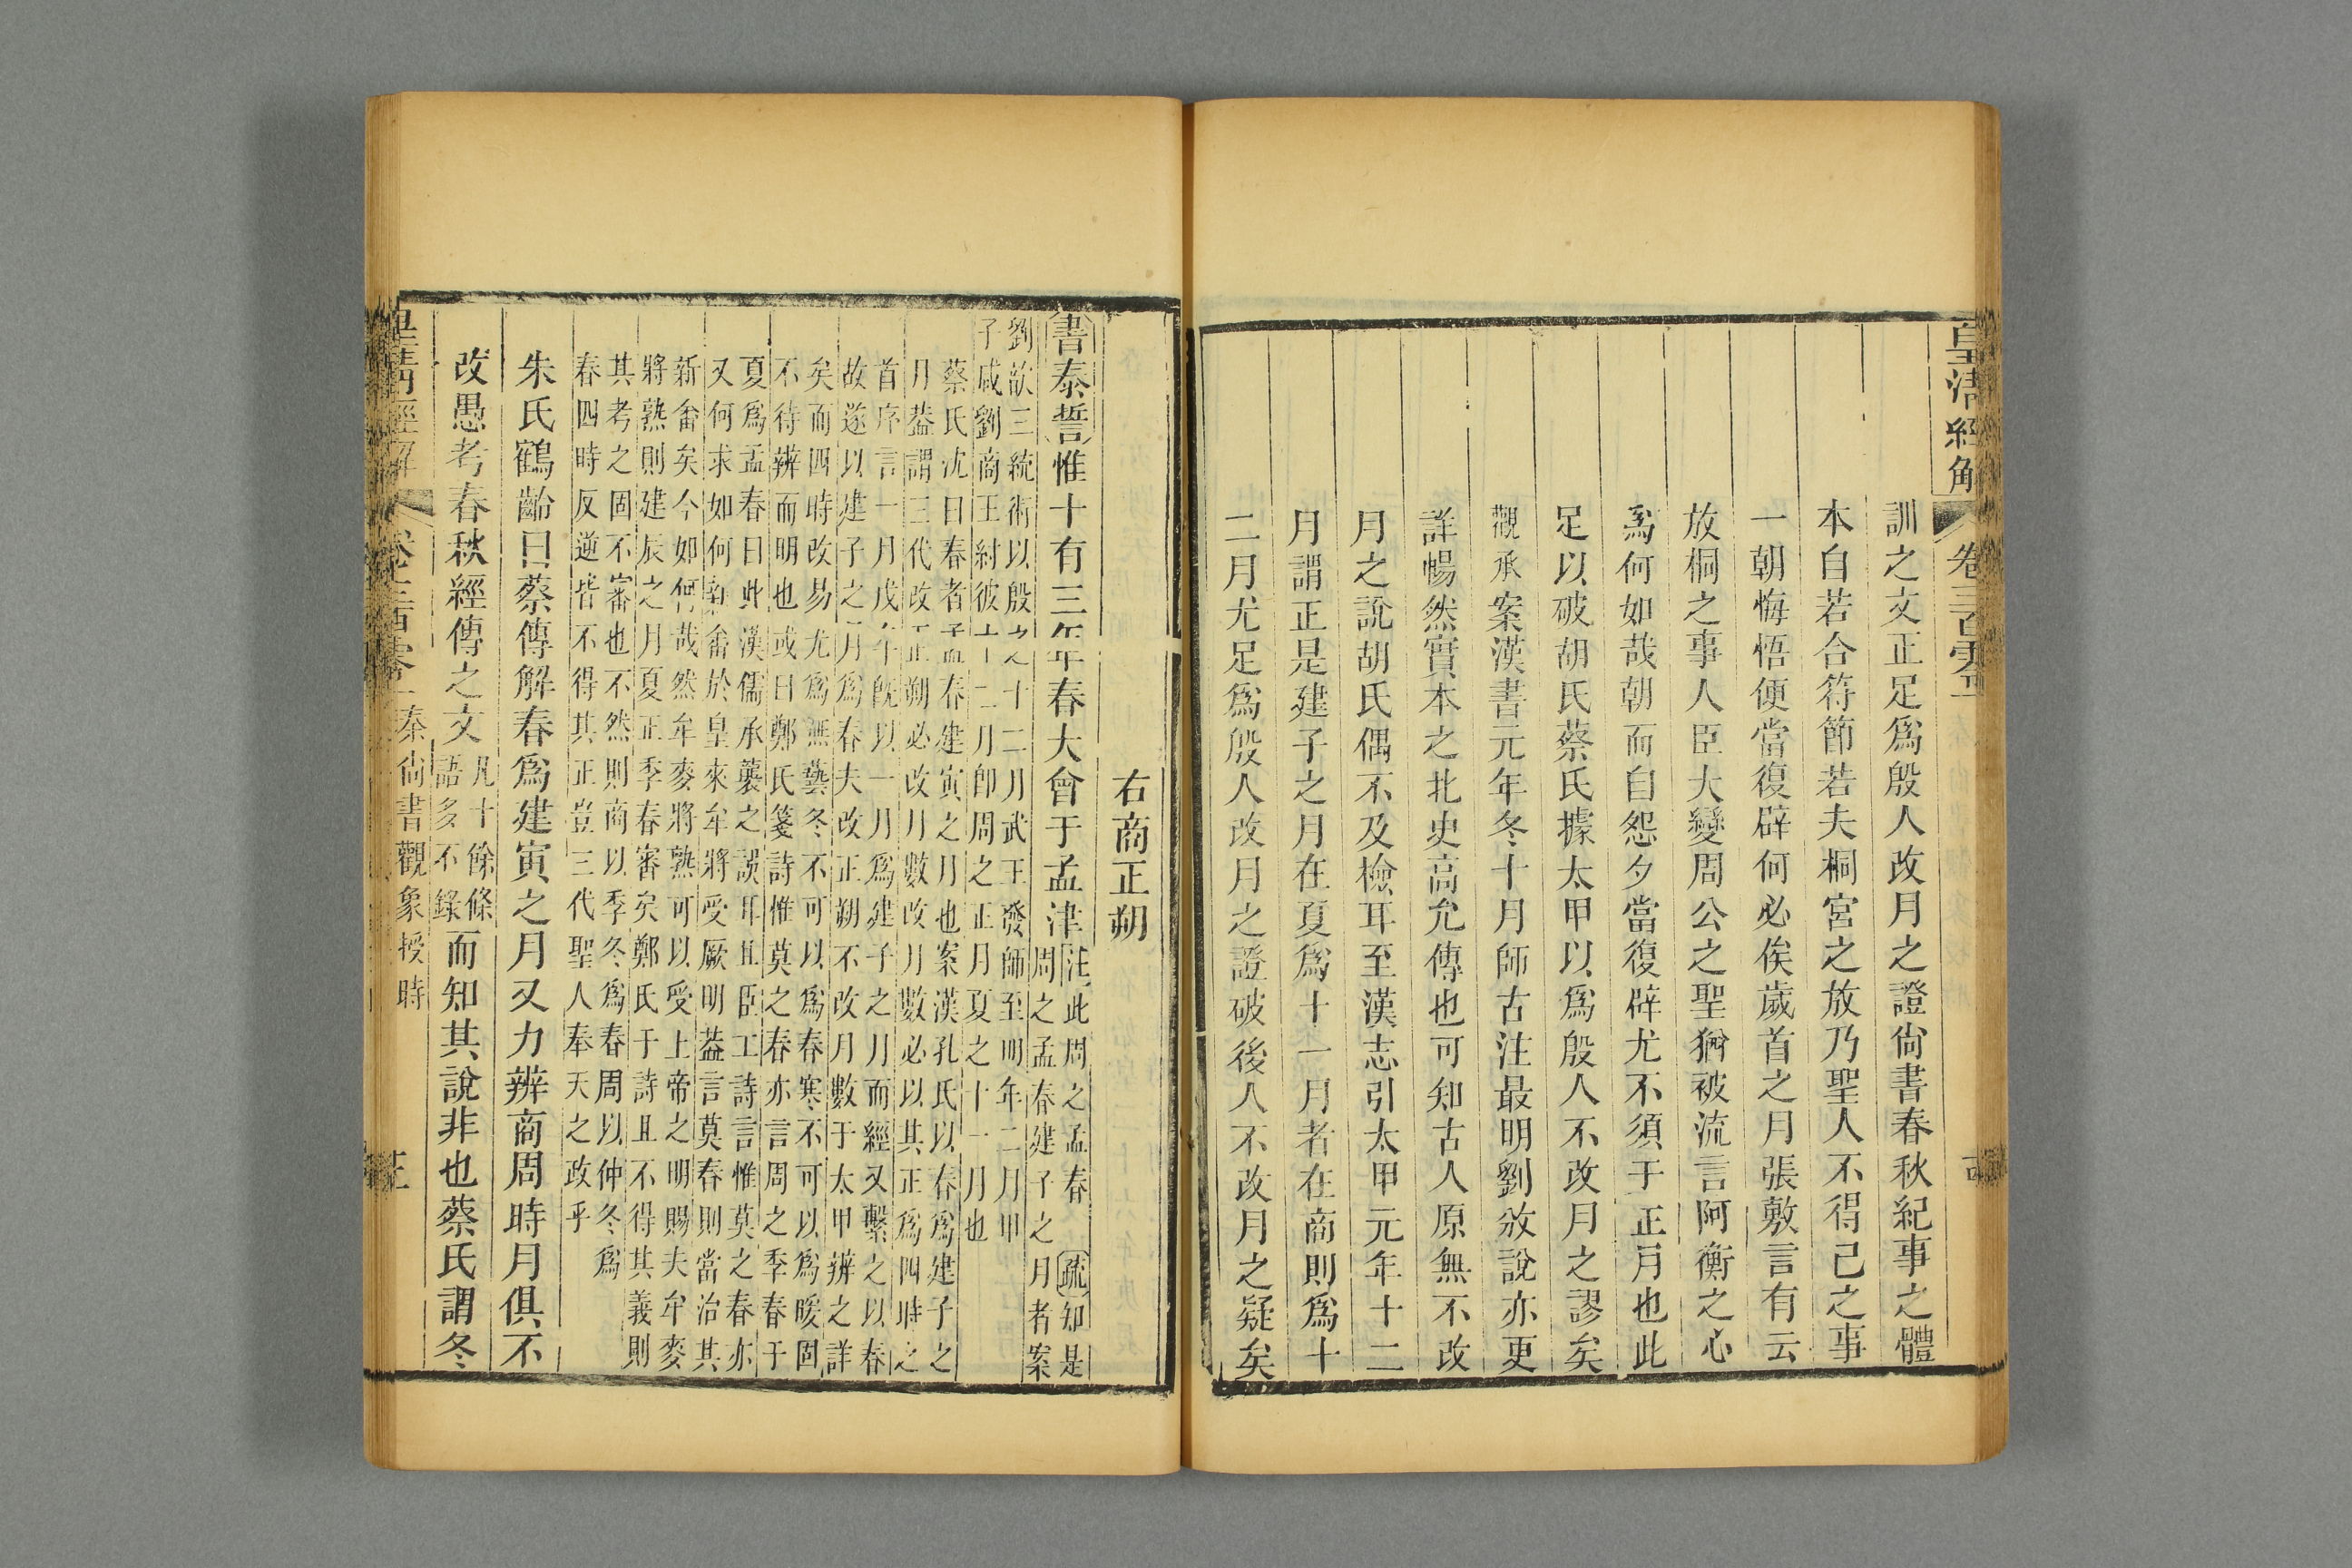 皇淸經解
訓之文正足爲殷人改月之證尙書春秋紀事之體
本自若合符節若夫桐宮之放乃聖人不得已之事
一朝悔悟便當復辟何必俟歲首之月張敷言有云
放桐之事人臣大變周公之聖猶被流言阿衡之心
爲何如哉朝而自怨夕當復辟尤不須于正月也此
足以破胡氏蔡氏據太甲以爲殷人不改月之謬矣
觀承案漢書元年冬十月師古注最明劉攽說亦更
詳暢然實本之北史高允傳也可知古人原無不改
月之說胡氏偶不及檢耳至漢志引太甲元年十二
月謂正是建子之月在夏爲十一月者在商則爲十
二月尤足爲殷人改月之證破後人不改月之疑矣
右商正朔
書泰誓惟十有三年春大會于孟津
注此周之孟春疏知是
周之孟春建子之月者案
劉歆三統術以殷之十二月武王發師至明年二月甲
子咸劉商王紂彼十二月卽周之正月夏之十一月也
蔡氏沈曰春者孟春建寅之月也案漢孔氏以春爲建子之
月蓋謂三代改正朔必改月數改月數必以其正爲四時之
首序言一月戊午旣以一月爲建子之月而經又繫之以春
故遂以建子之月爲春夫改正朔不改月數于太甲辨之詳
矣而四時改易尤爲無藝冬不可以爲春寒不可以爲暖固
不待辨而明也或曰鄭氏箋詩惟莫之春亦言周之季春于
夏爲孟春曰此漢儒承襲之誤耳且臣工詩言惟莫之春亦
又何求如何新畬於皇來牟將受厥明蓋言莫春則當治其
新畬矣今如何哉然牟麥將熟可以受上帝之明賜夫牟麥
將熟則建辰之月夏正季春審矣鄭氏于詩且不得其義則
其考之固不審也不然則商以季冬爲春周以仲冬爲
春四時反逆皆不得其正豈三代聖人奉天之政乎
朱氏鶴齡曰蔡傳解春爲建寅之月又力辨商周時月俱不
改愚考春秋經傳之文
凡十餘條
語多不錄
而知其說非也蔡氏謂冬
皇淸經解
秦尙書觀象授時